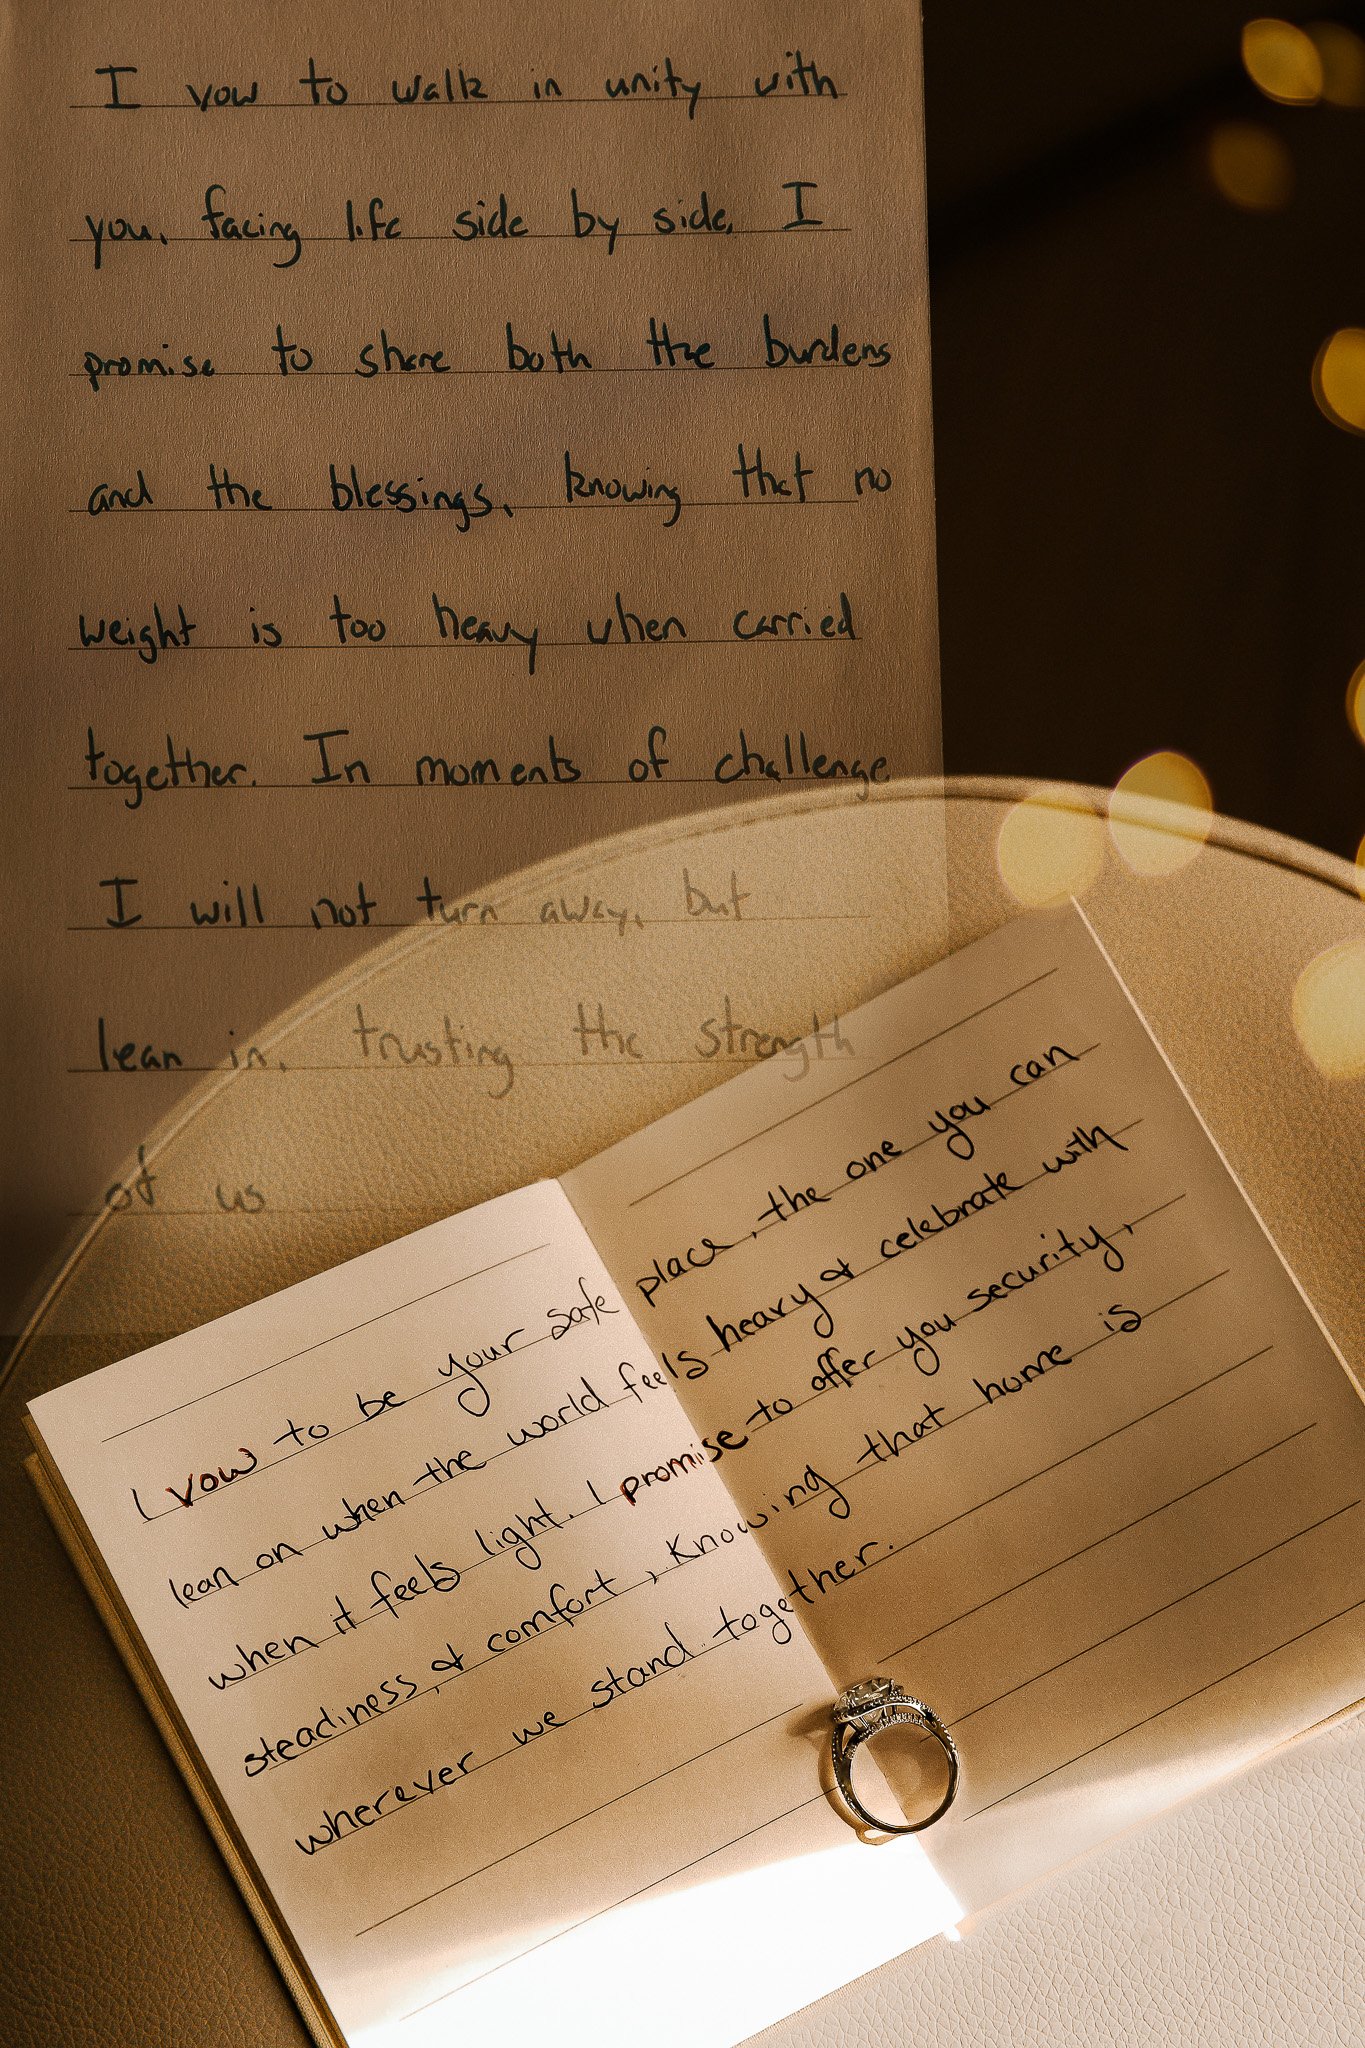 I vow to walk in unity with
you, facing life side by side. I
promise to share both the burdens
and the blessings, knowing that no
weight is too heavy when carried
together. In moments of challenge
I will not turn away, but
lean in, trusting the strength
of us
I vow to be your safe place, the one you can
lean on when the world feels heavy & celebrate with
when it feels light. I promise to offer you security,
steadiness, & comfort, knowing that home is
wherever we stand together.